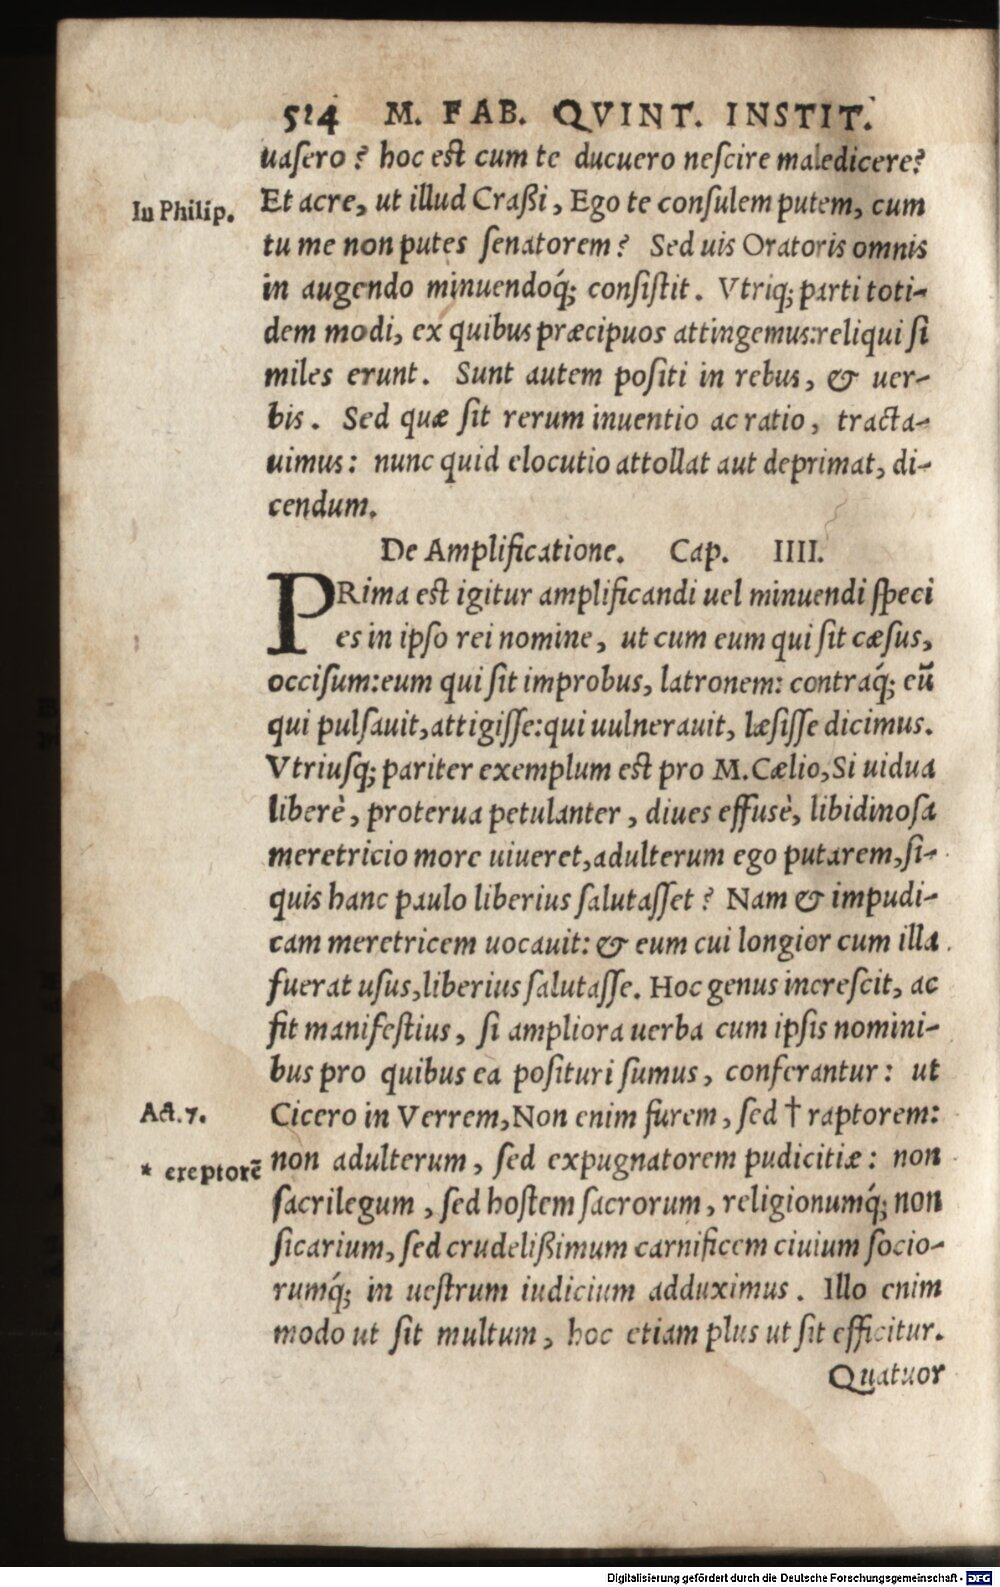 524 M. FAB. QVINT. INSTIT.
uasero? hoc est cum te ducuero nescire maledicere?
In Philip.
Et acre, ut illud Craßi, Ego te consulem putem, cum
tu me non putes senatorem? Sed uis Oratoris omnis
in augendo minuendoq́; consistit. Vtriq; parti toti-
dem modi, ex quibus præcipuos attingemus:reliqui si
miles erunt. Sunt autem positi in rebus, & uer-
bis. Sed quæ sit rerum inuentio ac ratio, tracta-
uimus: nunc quid elocutio attollat aut deprimat, di-
cendum.
De Amplificatione. Cap. IIII.
PRima est igitur amplificandi uel minuendi speci
es in ipso rei nomine, ut cum eum qui sit cæsus,
occisum:eum qui sit improbus, latronem: contraq́; eũ
qui pulsauit,attigisse:qui uulnerauit, læsisse dicimus.
Vtriusq; pariter exemplum est pro M.Cælio,Si uidua
liberè, proterua petulanter, diues effusè, libidinosa
meretricio more uiueret,adulterum ego putarem,si-
quis hanc paulo liberius salutasset? Nam & impudi-
cam meretricem uocauit: & eum cui longior cum illa
fuerat usus,liberius salutasse. Hoc genus increscit, ac
fit manifestius, si ampliora uerba cum ipsis nomini-
bus pro quibus ea posituri sumus, conferantur: ut
Act.7.
Cicero in Verrem,Non enim furem, sed † raptorem:
* ereptorẽ
non adulterum, sed expugnatorem pudicitiæ: non
sacrilegum, sed hostem sacrorum, religionumq́; non
sicarium, sed crudelißimum carnificem ciuium socio-
rumq́; in uestrum iudicium adduximus. Illo enim
modo ut sit multum, hoc etiam plus ut sit efficitur.
Quatuor
Digitalisierung gefördert durch die Deutsche Forschungsgemeinschaft - DFG